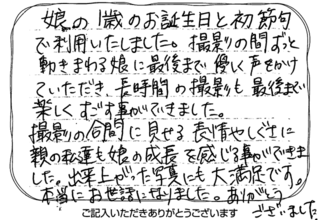 娘の1歳のお誕生日と初節句
で利用いたしました。撮影の間ずっと
動きまわる娘に最後まで優しく声をかけ
ていただき、長時間の撮影も最後まで
楽しくすごす事ができました。
撮影の合間に見せる表情やしぐさに
親の私達も娘の成長を感じる事ができま
した。出来上がった写真にも大満足です。
本当にお世話になりました。ありがとう
ございました
ご記入いただきありがとうございます